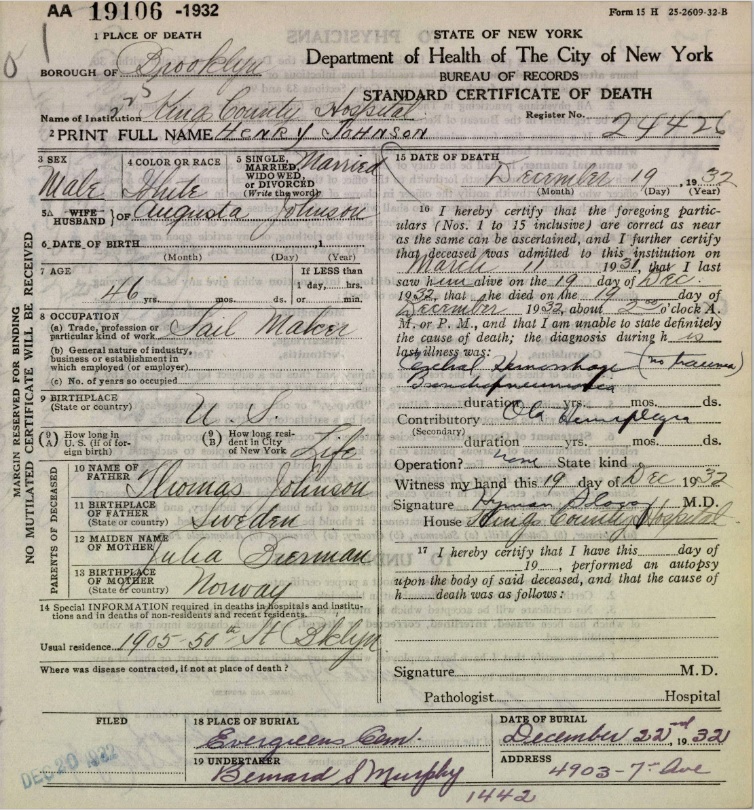 AA 19106 -1932
Form 15 H 25-2609-32-B
1 PLACE OF DEATH
BOROUGH OF Brooklyn
STATE OF NEW YORK
Department of Health of The City of New York
BUREAU OF RECORDS
STANDARD CERTIFICATE OF DEATH
Name of Institution King County Hospital
Register No. 24426
2 PRINT FULL NAME HENRY JOHNSON
MARGIN RESERVED FOR BINDING
NO MUTILATED CERTIFICATE WILL BE RECEIVED
3 SEX
Male
4 COLOR OR RACE
White
5 SINGLE, MARRIED, WIDOWED, or DIVORCED (Write the word) Married
5A WIFE HUSBAND } OF Augusta Johnson
6 DATE OF BIRTH ,1
(Month) (Day) (Year)
7 AGE
46 yrs. mos. ds.
If LESS than
1 day, hrs.
or min.
8 OCCUPATION
(a) Trade, profession or
particular kind of work Sail Maker
(b) General nature of industry,
business or establishment in
which employed (or employer)
(c) No. of years so occupied
9 BIRTHPLACE
(State or country) U. S.
(9 A) How long in
U. S. (if of foreign birth)
(9 B) How long resident in City
of New York Life
PARENTS OF DECEASED
10 NAME OF
FATHER Thomas Johnson
11 BIRTHPLACE
OF FATHER
(State or country) Sweden
12 MAIDEN NAME
OF MOTHER Julia Bierman
13 BIRTHPLACE
OF MOTHER
(State or country) Norway
14 Special INFORMATION required in deaths in hospitals and institutions and in deaths of non-residents and recent residents.
Usual residence 1905-50th St Bklyn
Where was disease contracted, if not at place of death?
15 DATE OF DEATH
December 19, 1932
(Month) (Day) (Year)
16 I hereby certify that the foregoing particulars
(Nos. 1 to 15 inclusive) are correct as near
as the same can be ascertained, and I further certify
that deceased was admitted to this institution on
March 11 1931, that I last
saw him alive on the 19 day of Dec.
1932, that he died on the 19 day of
December 1932, about 2 o'clock A.
M. or P. M., and that I am unable to state definitely
the cause of death; the diagnosis during his
last illness was:
Hemorrhage (no trauma)
Bronchopneumonia
duration yrs. mos. ds.
Contributory Old Hemiplegia
(Secondary)
duration yrs. mos. ds.
Operation? none State kind
Witness my hand this 19 day of Dec 1932
Signature Hyman M.D.
House Kings County Hospital
17 I hereby certify that I have this day of
19 , performed an autopsy
upon the body of said deceased, and that the cause of
h death was as follows:
Signature M.D.
Pathologist Hospital
FILED
DEC 20 1932
18 PLACE OF BURIAL
Evergreens Cem.
DATE OF BURIAL
December 22nd, 1932
19 UNDERTAKER
Bernard S Murphy
1442
ADDRESS
4903-7th Ave